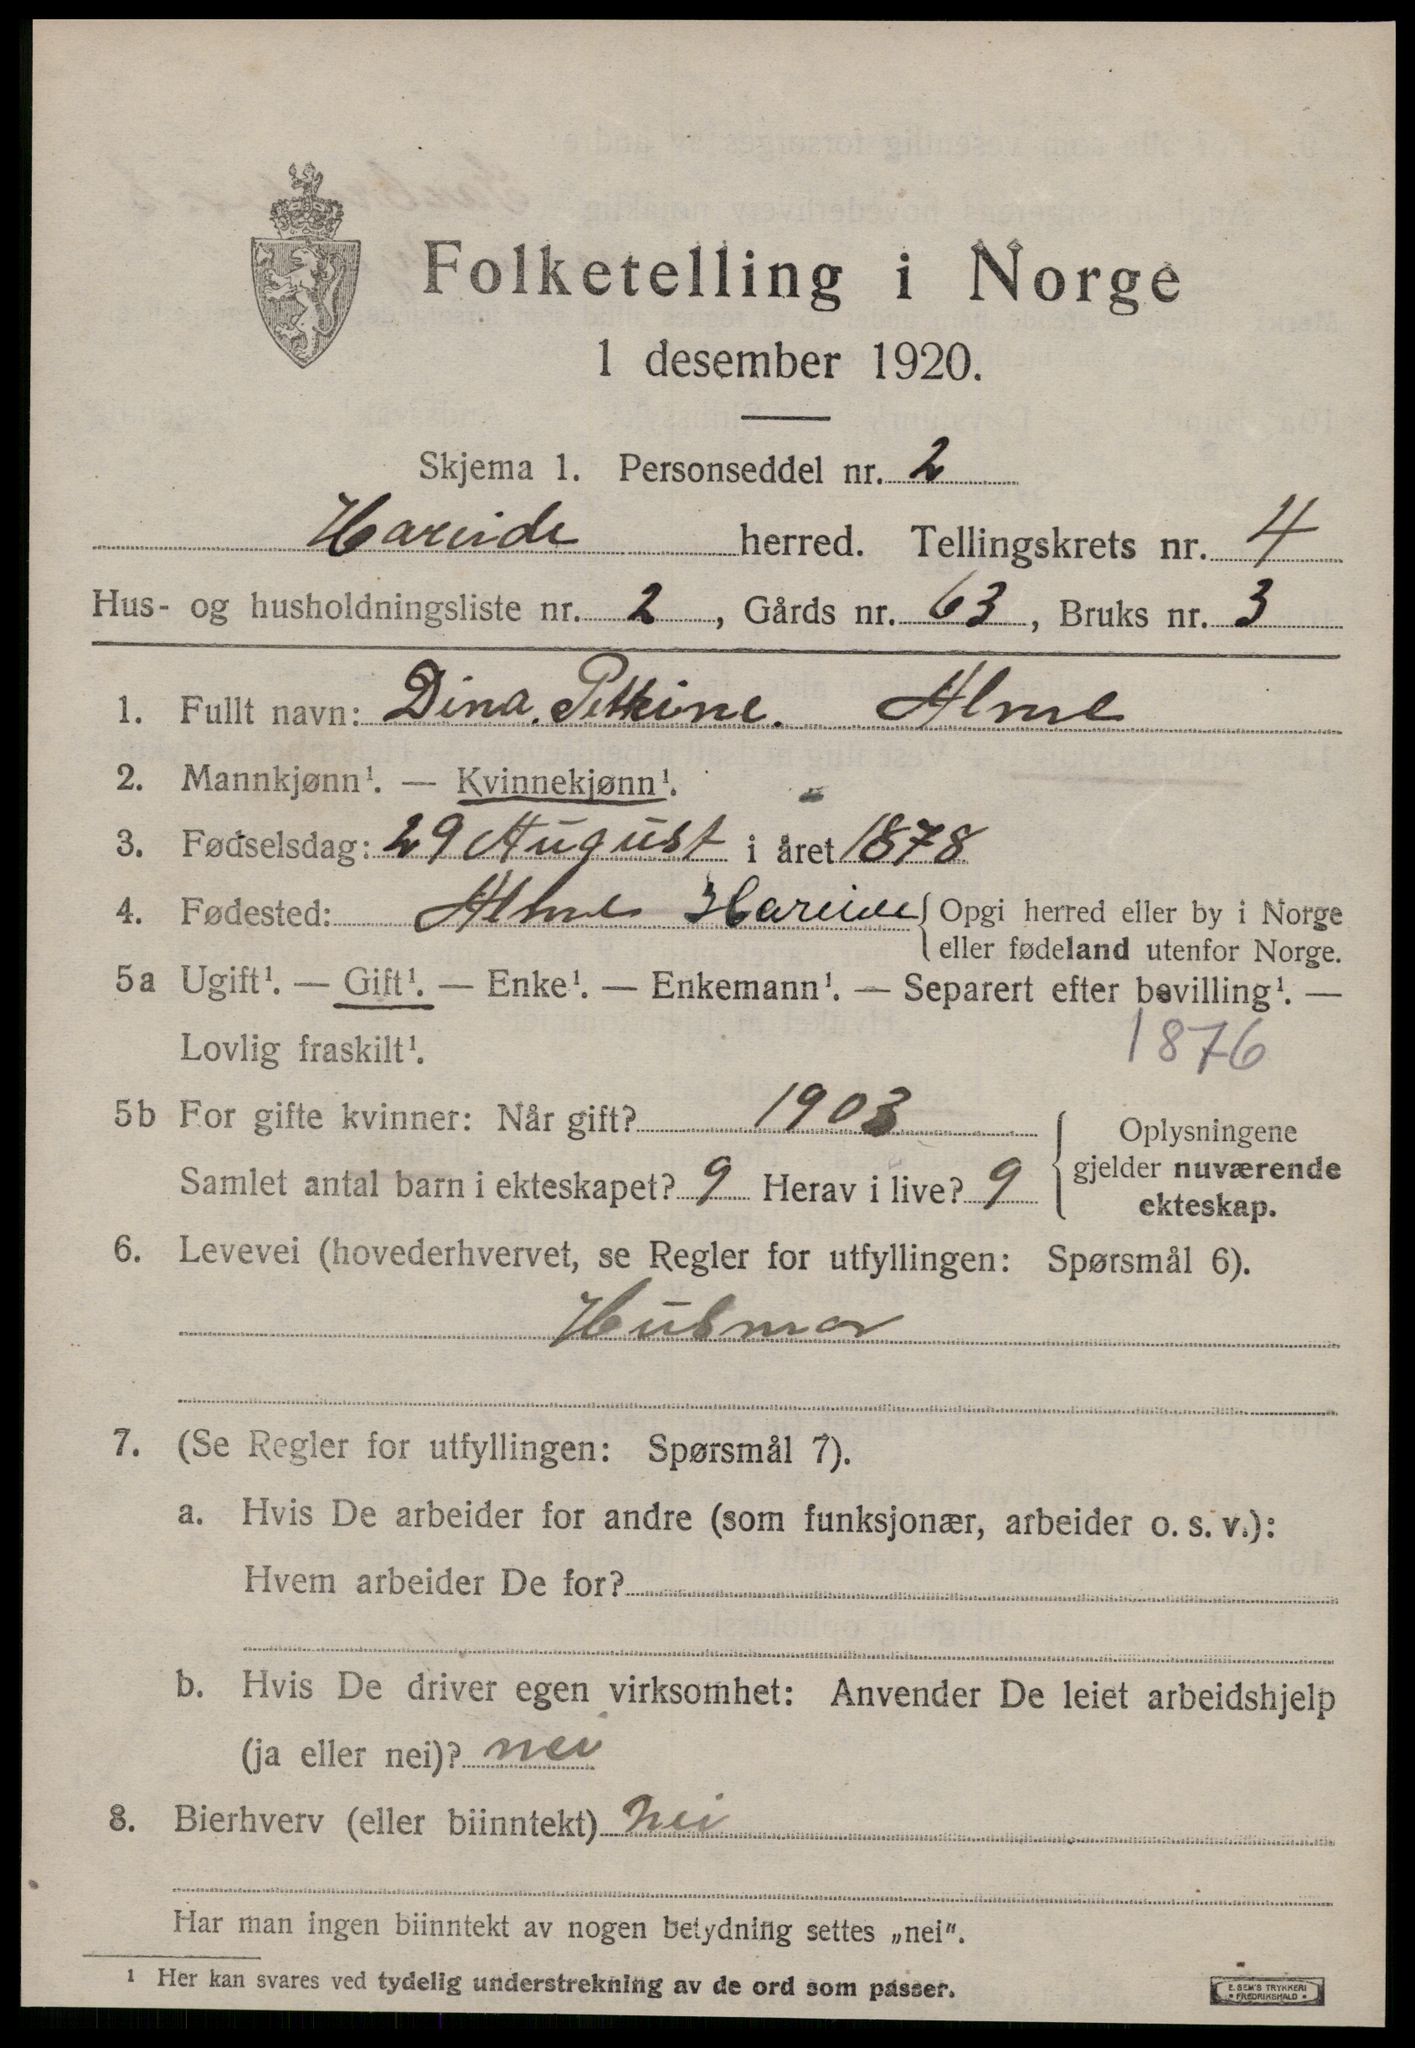 Folketelling i Norge
1 desember 1920.
Skjema 1. Personseddel nr. 2
Hareide herred. Tellingskrets nr. 4
Hus- og husholdningsliste nr. 2, Gårds nr. 63, Bruks nr. 3
1. Fullt navn: Dina. Petrine. Alme
2. Mannkjønn¹. — Kvinnekjønn¹.
3. Fødselsdag: 29 August i året 1878
4. Fødested: Alme Hareide { Opgi herred eller by i Norge
eller fødeland utenfor Norge.
5a Ugift¹. — Gift¹. — Enke¹. — Enkemann¹. — Separert efter bevilling¹. —
Lovlig fraskilt¹. 1876
5b For gifte kvinner: Når gift? 1903
Samlet antal barn i ekteskapet? 9 Herav i live? 9
Oplysningene
gjelder nuværende
ekteskap.
6. Levevei (hovederhvervet, se Regler for utfyllingen: Spørsmål 6).
Husmor
7. (Se Regler for utfyllingen: Spørsmål 7).
a. Hvis De arbeider for andre (som funksjonær, arbeider o. s. v.):
Hvem arbeider De for?
b. Hvis De driver egen virksomhet: Anvender De leiet arbeidshjelp
(ja eller nei)? nei
8. Bierhverv (eller biinntekt) nei
Har man ingen biinntekt av nogen betydning settes „nei".
¹ Her kan svares ved tydelig understrekning av de ord som passer.
E. SEM'S TRYKKERI
FREDRIKSHALD